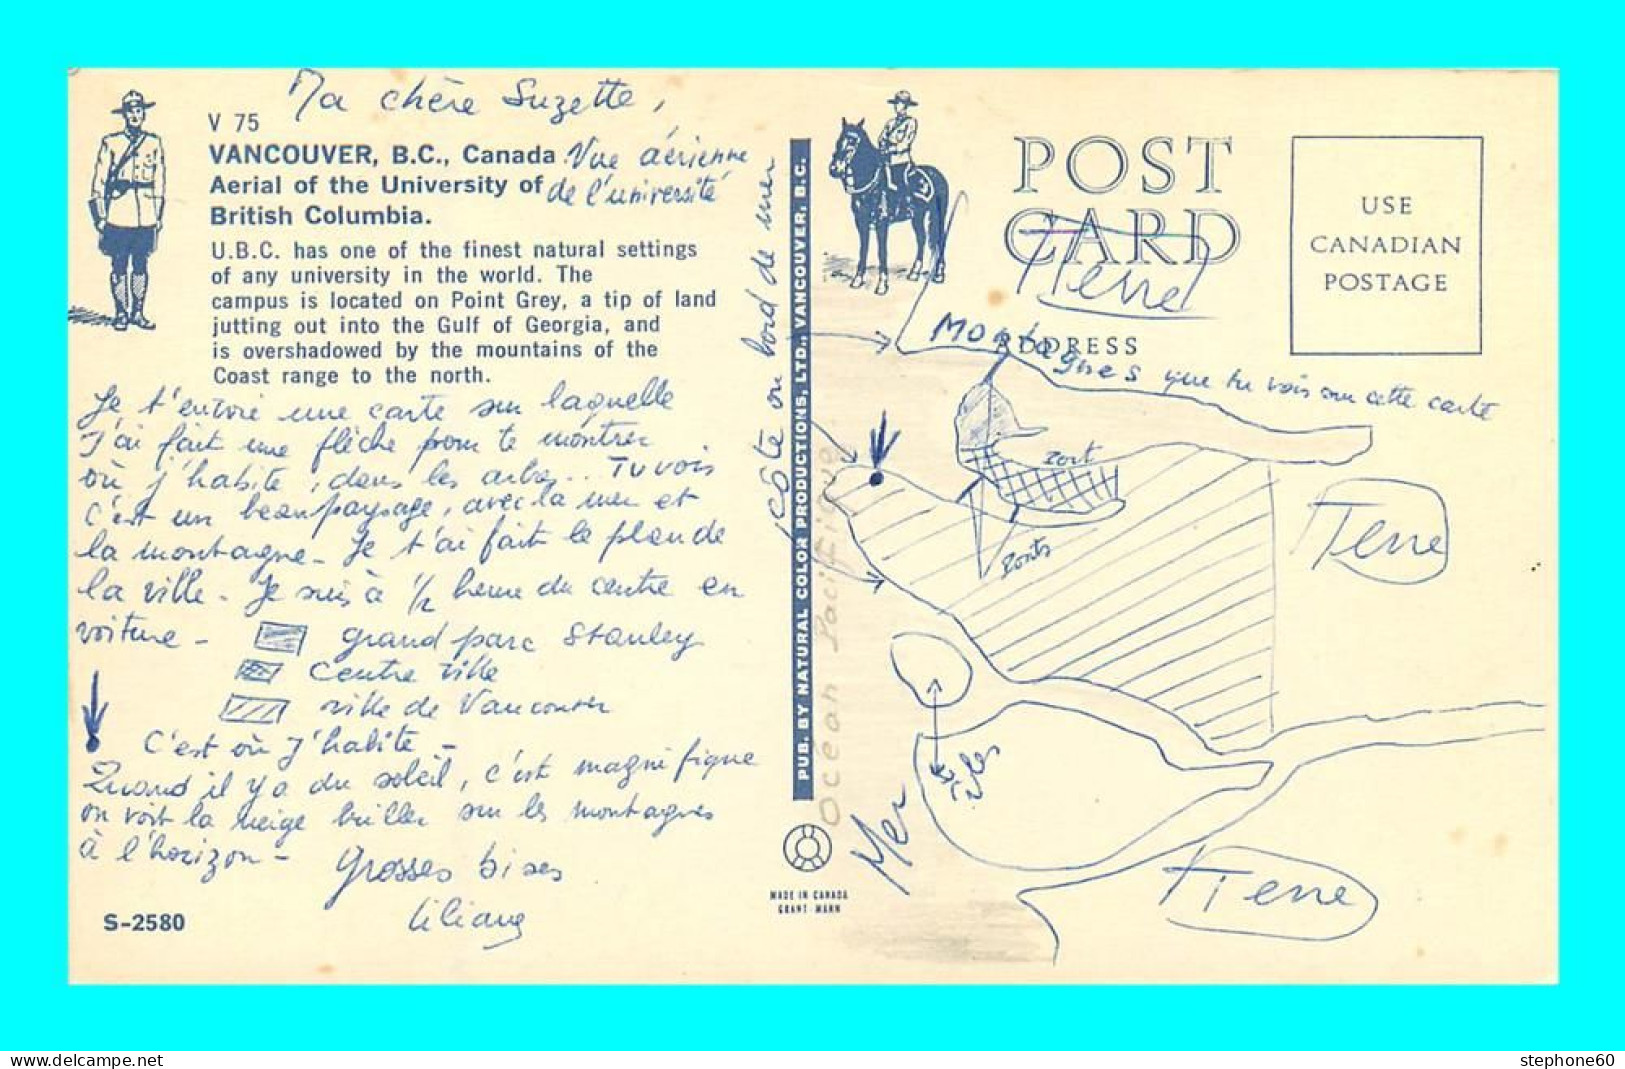 Ma chère Suzette,
V 75
VANCOUVER, B.C., Canada. Vue aérienne
Aerial of the University of de l'université
British Columbia.
U.B.C. has one of the finest natural settings
of any university in the world. The
campus is located on Point Grey, a tip of land
jutting out into the Gulf of Georgia, and
is overshadowed by the mountains of the
Coast range to the north.
Je t'envoie une carte sur laquelle
j'ai fait une flèche pour te montrer
où j'habite, dans les arbres... Tu vois
c'est un beau paysage, avec la mer et
la montagne - Je t'ai fait le plan de
la ville - Je suis à 1/2 heure du centre en
voiture -
grand parc Stanley
centre ville
ville de Vancouver
C'est où j'habite -
Quand il y a du soleil, c'est magnifique
on voit la neige briller sur les montagnes
à l'horizon -
Grosses bises
Liliane
S-2580
côte ou bord de mer
PUB. BY NATURAL COLOR PRODUCTIONS, LTD., VANCOUVER, B.C.
MADE IN CANADA
GRANT-MANN
POST
CARD
Terre
ADDRESS
USE
CANADIAN
POSTAGE
Montagnes que tu vois sur cette carte
port
ponts
Terre
Océan Pacifique
îles
Mer
Terre
stephone60